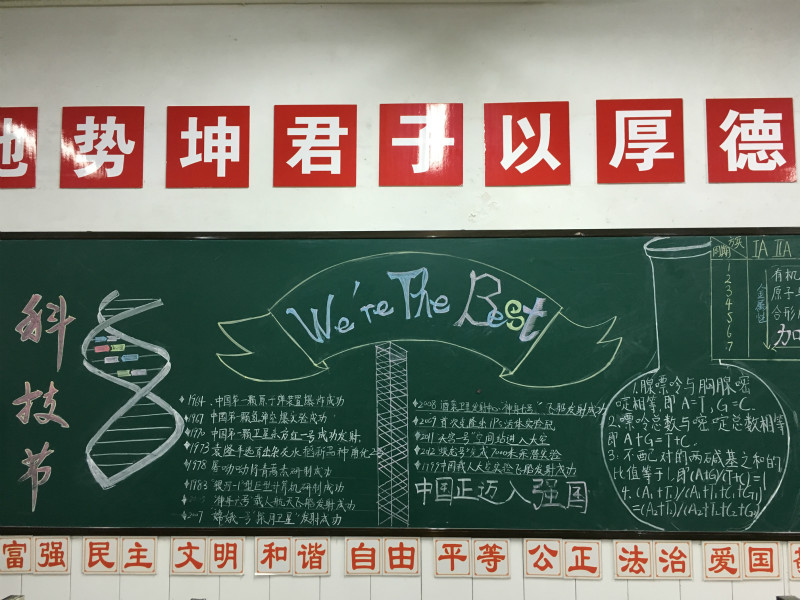 地势坤君子以厚德
科技节
We're The Best
1964、中国第一颗原子弹装置爆炸成功
1967 中国第一颗氢弹空爆实验成功
1970 中国第一颗卫星东方红一号成功发射
1973 袁隆平选育出杂交水稻新品种
1978
1983 "银河-1"型巨型计算机研制成功
"神舟六号"载人航天飞船发射成功
2007 "嫦娥一号"探月卫星"发射成功
2008 酒泉卫星发射中心"神舟七号"飞船发射成功
2009 首次
2011 天宫一号"空间站进入太空
2012 蛟龙号完成7000米深潜实验
1999 中国载人太空实验飞船发射成功
中国正迈入强国
1.腺嘌呤与胸腺嘧
啶相等,即A=T,G=C.
2.嘌呤总数与嘧啶总数相等
即A+G=T+C.
3.不配对的两碱基之和的
比值等于1,即(A+G)/(T+C)=1
4.(A₁+T₁)/(A₁+T₁+C₁+G₁)
=(A₂+T₂)/(A₂+T₂+C₂+G₂)
周期 族 IA IIA
1
2
3
4
5
6
7
金属性
有机
原子
合形
加
富强 民主 文明 和谐 自由 平等 公正 法治 爱国